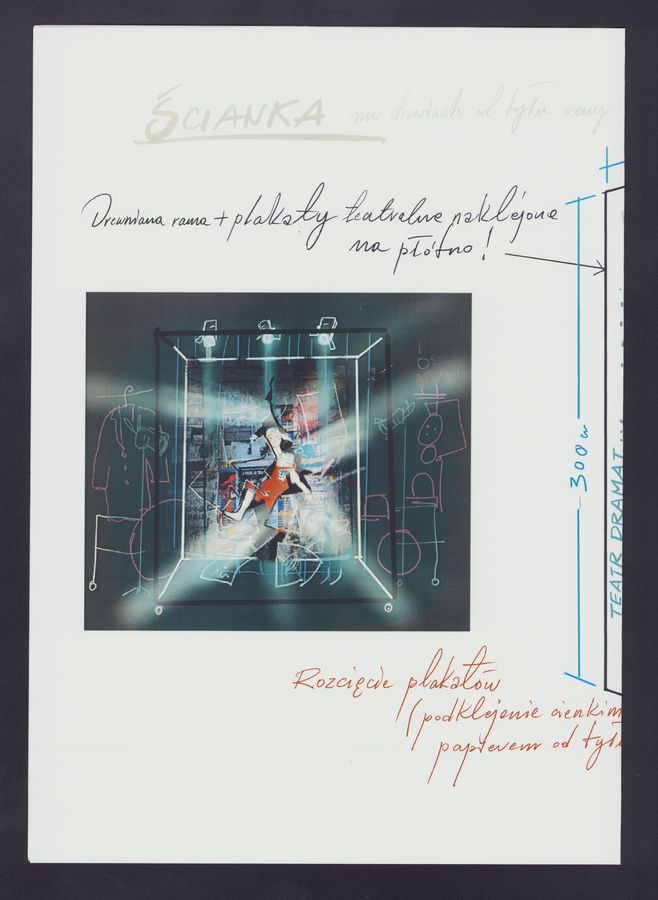 ŚCIANKA na drzwiach od tyłu sceny
Drewniana rama + plakaty teatralne naklejone
na płótno!
300
TEATR DRAMAT
Rozcięcie plakatów
(podklejenie cienkim
papierem od tyłu